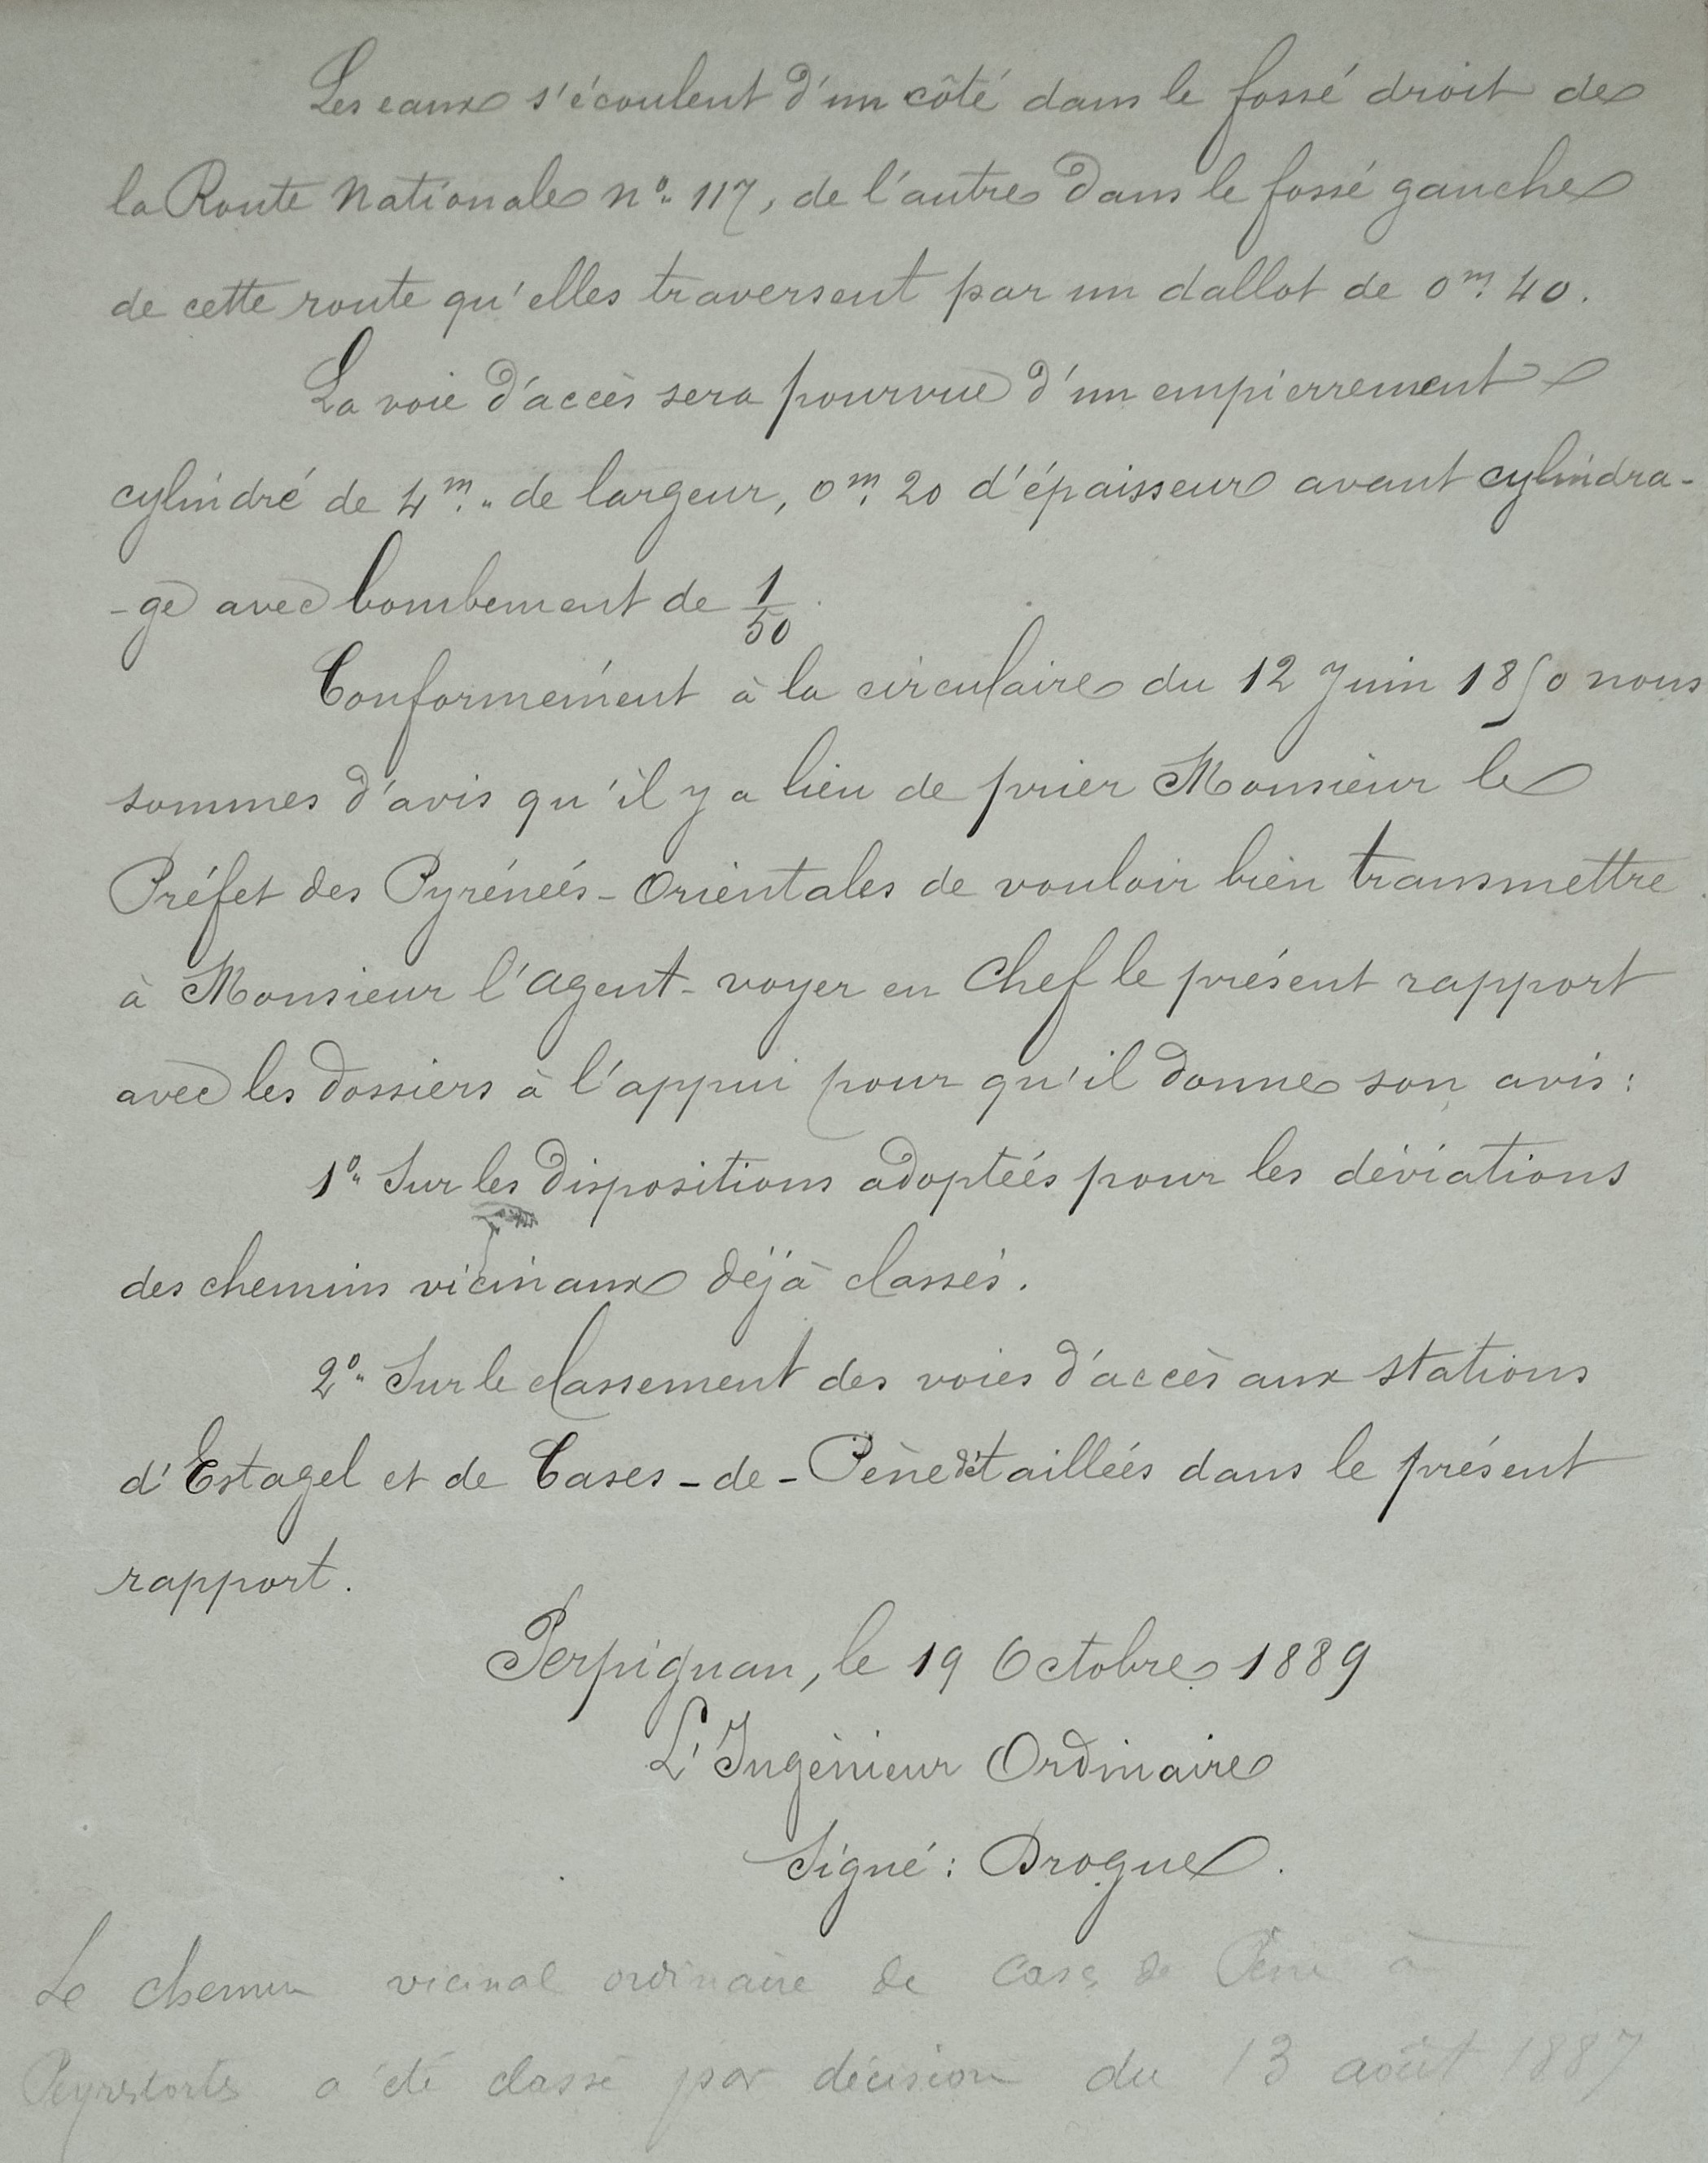 Les eaux s'écoulent d'un côté dans le fossé droit de
la Route Nationale n° 117, de l'autre dans le fossé gauche
de cette route qu'elles traversent par un dallot de 0m. 40.
La voie d'accès sera pourvue d'un empierrement
cylindré de 4m. " de largeur, 0m. 20 d'épaisseur avant cylindra-
-ge avec bombement de 1/50.
Conformément à la circulaire du 12 Juin 1850 nous
sommes d'avis qu'il y a lieu de prier Monsieur le
Préfet des Pyrénées-Orientales de vouloir bien transmettre
à Monsieur l'agent-voyer en Chef le présent rapport
avec les dossiers à l'appui pour qu'il donne son avis :
1° Sur les dispositions adoptées pour les déviations
des chemins vicinaux déjà classés.
2° Sur le classement des voies d'accès aux stations
d'Estagel et de Cases-de-Pène détaillées dans le présent
rapport.
Perpignan, le 19 Octobre 1889
L'Ingénieur Ordinaire
Signé : Drogue.
Le chemin vicinal ordinaire de Cases de Pène à
Peyrestortes a été classé par décision du 13 août 1887